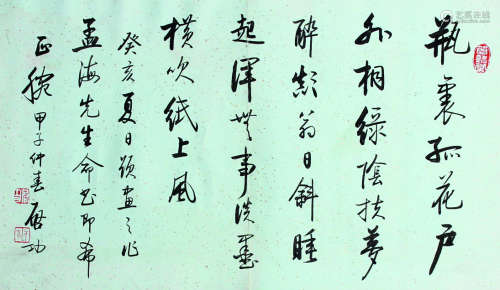 瓶裏孤花戶
外桐綠陰扶夢
醉顛翁日斜睡
起渾無事淡墨
橫吹紙上風
癸亥夏日題畫之作
孟海先生命書即希
正腕 甲子仲春 啟功